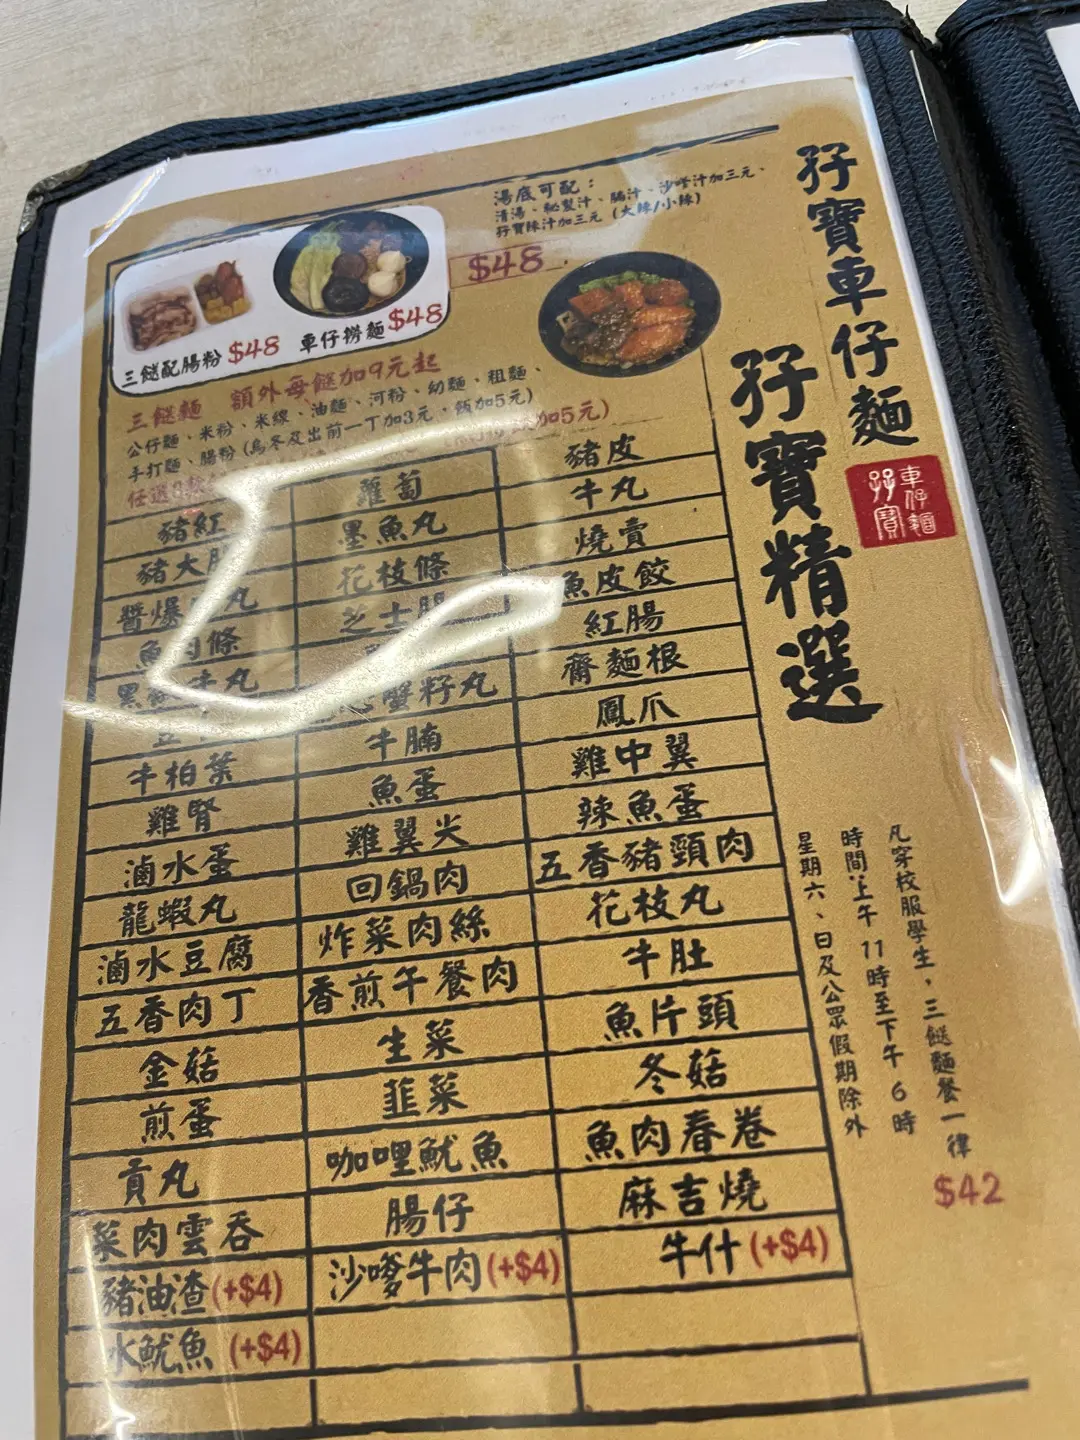 孖寶車仔麵
孖寶精選
車仔麵
孖寶
湯底可配：
清湯、秘製汁、腩汁、沙嗲汁加三元、
孖寶辣汁加三元（大辣/小辣）
$48
三餸配腸粉 $48
車仔撈麵 $48
三餸麵 額外每餸加9元起
公仔麵、米粉、米線、油麵、河粉、幼麵、粗麵、
手打麵、腸粉（烏冬及出前一丁加3元，飯加5元）
任選
加5元）
豬紅
豬大
醬爆 丸
魚肉條
黑 牛丸
牛柏葉
雞腎
滷水蛋
龍蝦丸
滷水豆腐
五香肉丁
金菇
煎蛋
貢丸
菜肉雲吞
豬油渣 (+$4)
水魷魚 (+$4)
蘿蔔
墨魚丸
花枝條
芝士腸
蟹籽丸
牛腩
魚蛋
雞翼尖
回鍋肉
炸菜肉絲
香煎午餐肉
生菜
韮菜
咖哩魷魚
腸仔
沙嗲牛肉 (+$4)
豬皮
牛丸
燒賣
魚皮餃
紅腸
齋麵根
鳳爪
雞中翼
辣魚蛋
五香豬頸肉
花枝丸
牛肚
魚片頭
冬菇
魚肉春卷
麻吉燒
牛什 (+$4)
凡穿校服學生，三餸麵餐一律
$42
時間：上午11時至下午6時
星期六、日及公眾假期除外